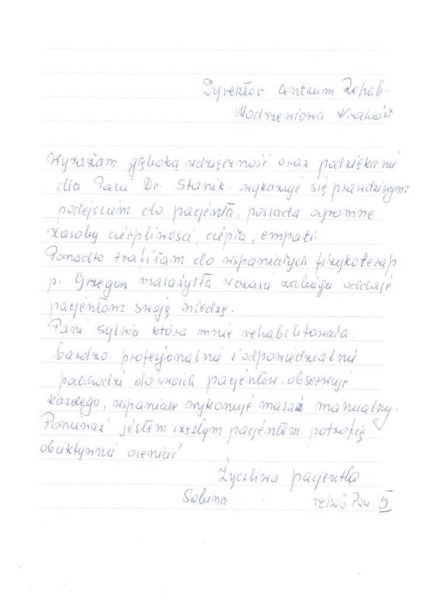 Dyrektor Centrum Rehab.
Modrzewiowa Kraków
Wyrażam głęboką wdzięczność oraz podziękowanie
dla Pani Dr Stanik wykazuje się prawdziwym
podejściem do pacjenta, posiada ogromne
zasoby cierpliwości, ciepła, empati.
Ponadto trafiłam do wspaniałych fizykoterap
p. Grzegorz masażysta oddaje
pacjentom swoją wiedzę.
Pani Sylwia która mnie rehabilitowała
bardzo profesjonalnie i odpowiedzialnie
podchodzi do swoich pacjentów, obserwuje
każdego, wspaniale wykonuje masaż manualny.
Ponieważ jestem częstym pacjentem potrafię
obiektywnie ocenić
Życzliwa pacjentka
Sabina 5